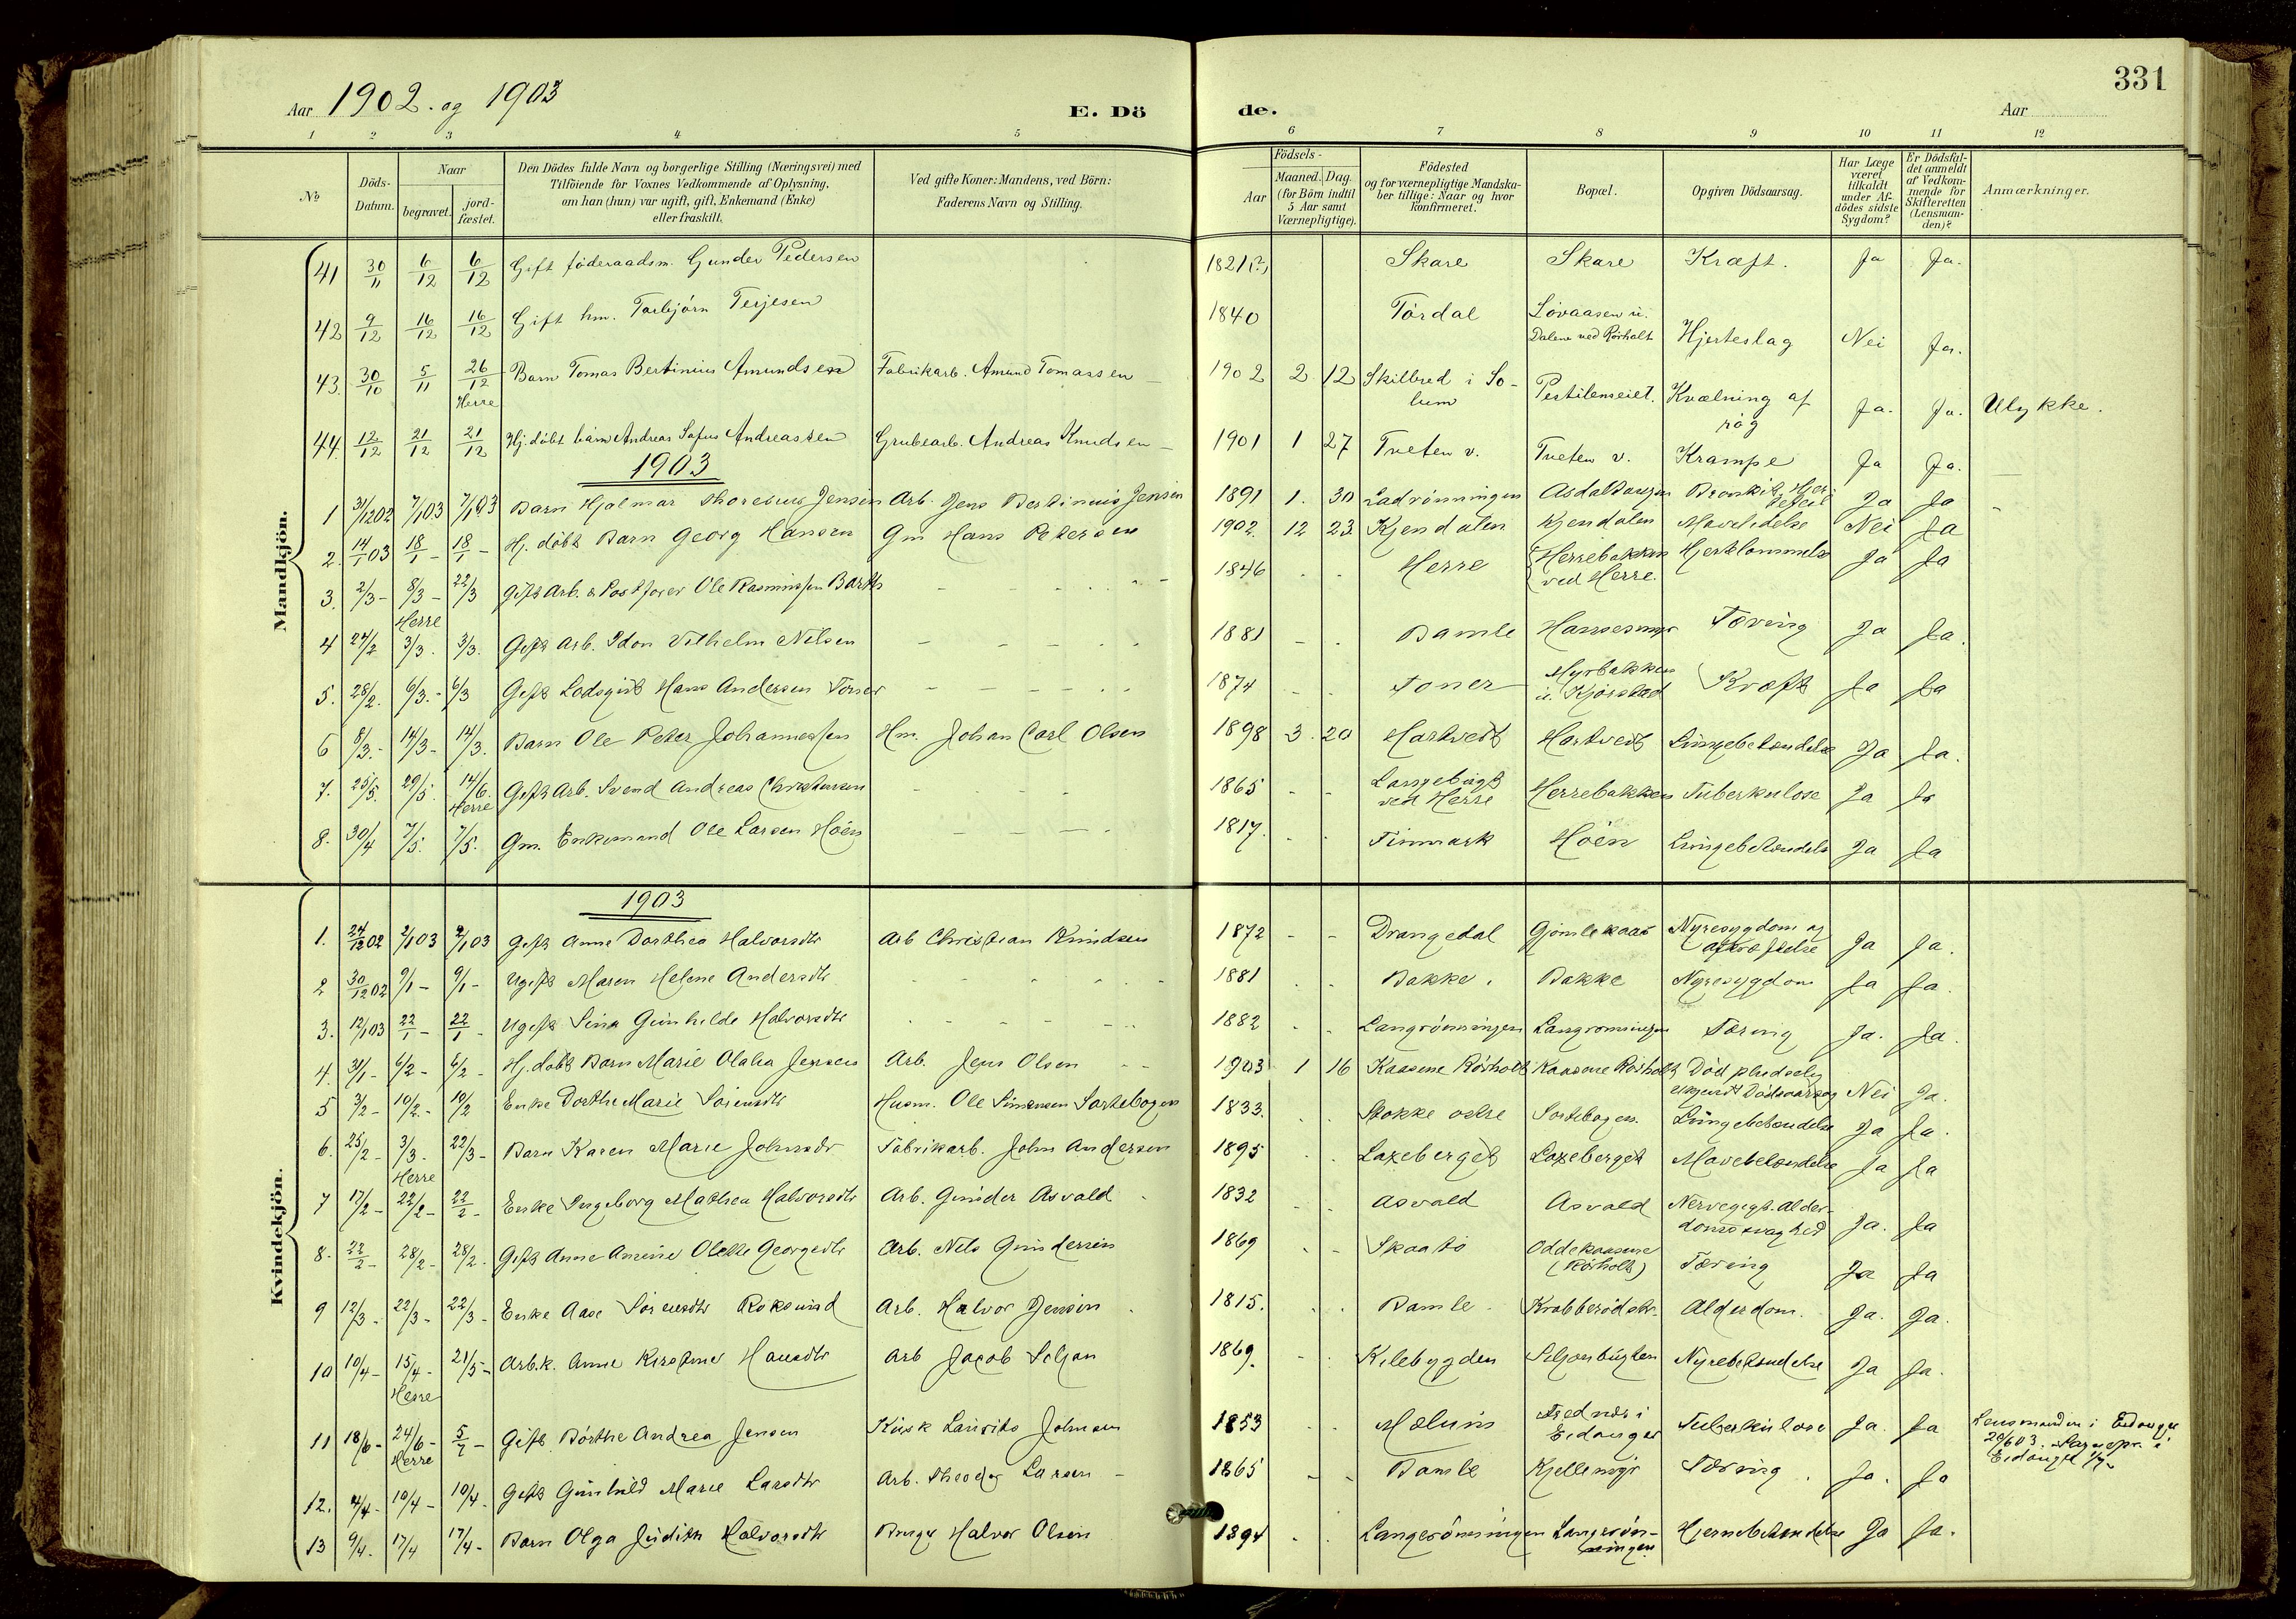 331
Aar 1902. og 1903
E. Dö
de.
Aar
1 2 3 4 5 6 7 8 9 10 11 12
No
Döds-Datum.
Naar
begravet.
jord-fæstet.
Den Dödes fulde Navn og borgerlige Stilling (Næringsvei) med
Tilföiende for Voxnes Vedkommende af Oplysning,
om han (hun) var ugift, gift, Enkemand (Enke)
eller fraskilt.
Ved gifte Koner: Mandens, ved Börn:
Faderens Navn og Stilling.
Födsels-
Aar
Maaned. Dag.
(for Börn indtil
5 Aar samt
Værnepligtige).
Födested
og for værnepligtige Mandska-
ber tillige: Naar og hvor
konfirmeret.
Bopæl.
Opgiven Dödsaarsag.
Har Læge
været
tilkaldt
under Af-
dödes sidste
Sygdom?
Er Dödsfal-
det anmeldt
af Vedkom-
mende for
Skifteretten
(Lensman-
den)?
Anmærkninger.
Mandkjön.
41 30/11 6/12 6/12 Gift föderaadsm. Gunder Pedersen 1821(?) Skare Skare Kræft. Ja Ja.
42 9/12 16/12 16/12 Gift hm. Torbjörn Terjesen 1840 Tördal Lövaasen u. Dalene ved Rörholt Hjerteslag Nei Ja.
43. 30/10 5/11 26/12 Herre Barn Tomas Bertinius Amundsen Fabrikarb. Amund Tomassen 1902 2 12 Skilbred i So-lum Pestilenseiet. Kvælning af róg Ja. Ja. Ulykke.
44. 12/12 21/12 21/12 Hj. döbt barn Andreas Sofus Andreassen Grubearb. Andreas Knudsen 1901 1 27 Tveten v. Tveten v. Krampe Ja Ja.
1903
1 31/12 02 7/1 03 7/1 03 Barn Hjalmar Jensen Arb. Jens Bertinius Jensen 1891 1. 30 Ladrönningen Ja Ja
2. 14/1 03 18/1 - 18/1 - Hj. döbt Barn Georg Hansen Gm Hans Petersen 1902. 12 23 Kjendalen Kjendalen Mavelidelse Nei Ja
3. 2/3 - 8/3 - Herre 22/3 Gift Arb. & Postforer Ole Rasmussen Barth 1846 Herre Herrebakken ved Herre. Ja Ja
4 24/2 3/3. 3/3. Gift Arb. Vilhelm Nilsen 1881 Bamle Tæring Ja Ja.
5. 28/2. 6/3. - 6/3 Gift Lodsgut Hans Andersen 1874 Toner Myrbakken u. Kjörstad Kræft Ja Ja
6 8/3. - 14/3 - 14/3. Barn Ole Peter Johannessen Hm. Johan Carl Olsen 1898 3. 20 Hartvedt Hartvedt Lungebetændelse Ja Ja.
7. 25/5. 29/5. 14/6. Herre Gift Arb. Svend Andreas Christensen 1865 Langebugt ved Herre Herrebakken Tuberkulose Ja Ja
8. 30/4 7/5. 7/5. Gm. Enkemand Ole Larsen Höen 1817. Finmark Höen Lungebetændelse Ja Ja
Kvindekjön.
1903
1. 24/12 02 2/1 03 2/1 03 Gift Anne Dorthea Halvorsdtr Arb Christian Knudsen 1872 Drangedal Gjömlekaas Nyresygdom og Afkræftelse Ja Ja.
2 30/12 02 9/1 - 9/1 - Ugift Maren Helene Andersdtr 1881 Bakke. Bakke Nyresygdom Ja Ja.
3. 12/1 03 22/1 - 22/1 - Ugift Sina Gunhilde Halvorsdtr 1882 Langrönningen Langrönningen Tæring Ja. Ja.
4. 31/1 - 6/2 - 6/2 - Hj. döbt Barn Marie Olalia Jensen Arb. Jens Olsen 1903 1 16 Kaasene Rörholt Kaasene Rörholt Död pludselig ukjendt Dödsaarsag Nei Ja.
5 3/2 - 10/2. - 10/2 Enke Dorthe Marie Sörensdtr Husm. Ole Simensen Sortebogen 1833. Stokke östre Sortebogen. Lungebetændelse Ja Ja.
6. 25/2 - 3/3. Herre 22/3 - Barn Karen Marie Johnsdtr Fabrikarb. John Andersen 1895 Laxeberget Laxeberget Mavebetændelse Ja Ja
7 17/2 - 22/2 - 22/2 - Enke Ingeborg Mathea Halvorsdtr Arb. Gunder Asvald 1832 Asvald Asvald Nervegigt. Alder-domssvaghed Ja. Ja
8. 22/2 - 28/2 - 28/2. Gift Anne Amine Olette Georgsdtr Arb. Nils Gundersen 1869 Skaatö Oddekaasene (Rörholt) Tæring Ja Ja
9 12/3 - 22/3 - 22/3 - Enke Aase Sörensdtr Roksund Arb. Halvor Jensen 1815. Bamle Krabberödstr. Alderdom. Ja. Ja.
10 10/4 - 15/4 - Herre 21/5 - Arb.k. Anne Kirstine Hansdtr Arb Jacob Seljan 1869. Kilebygden Seljanbugten Nyrebetændelse Ja Ja.
11 18/6 - 24/6 - Herre 5/7 - Gift Börthe Andrea Jensen Kusk Laurits Johnsen 1853 Mælum Eidanger Tuberkulose Ja. Ja Lensmanden i Eidanger
12. 4/4 - 10/4 - 10/4. Gift Gunhild Marie Larsdtr Arb. Theodor Larsen 1865 Bamle Kjellemyr Tæring. Ja. Ja
13 9/4. 17/4 17/4 - Barn Olga Judith Halvorsdtr Halvor Olsen 1894 Langerönningen Langerön-ningen Hjernebetændelse Ja Ja.